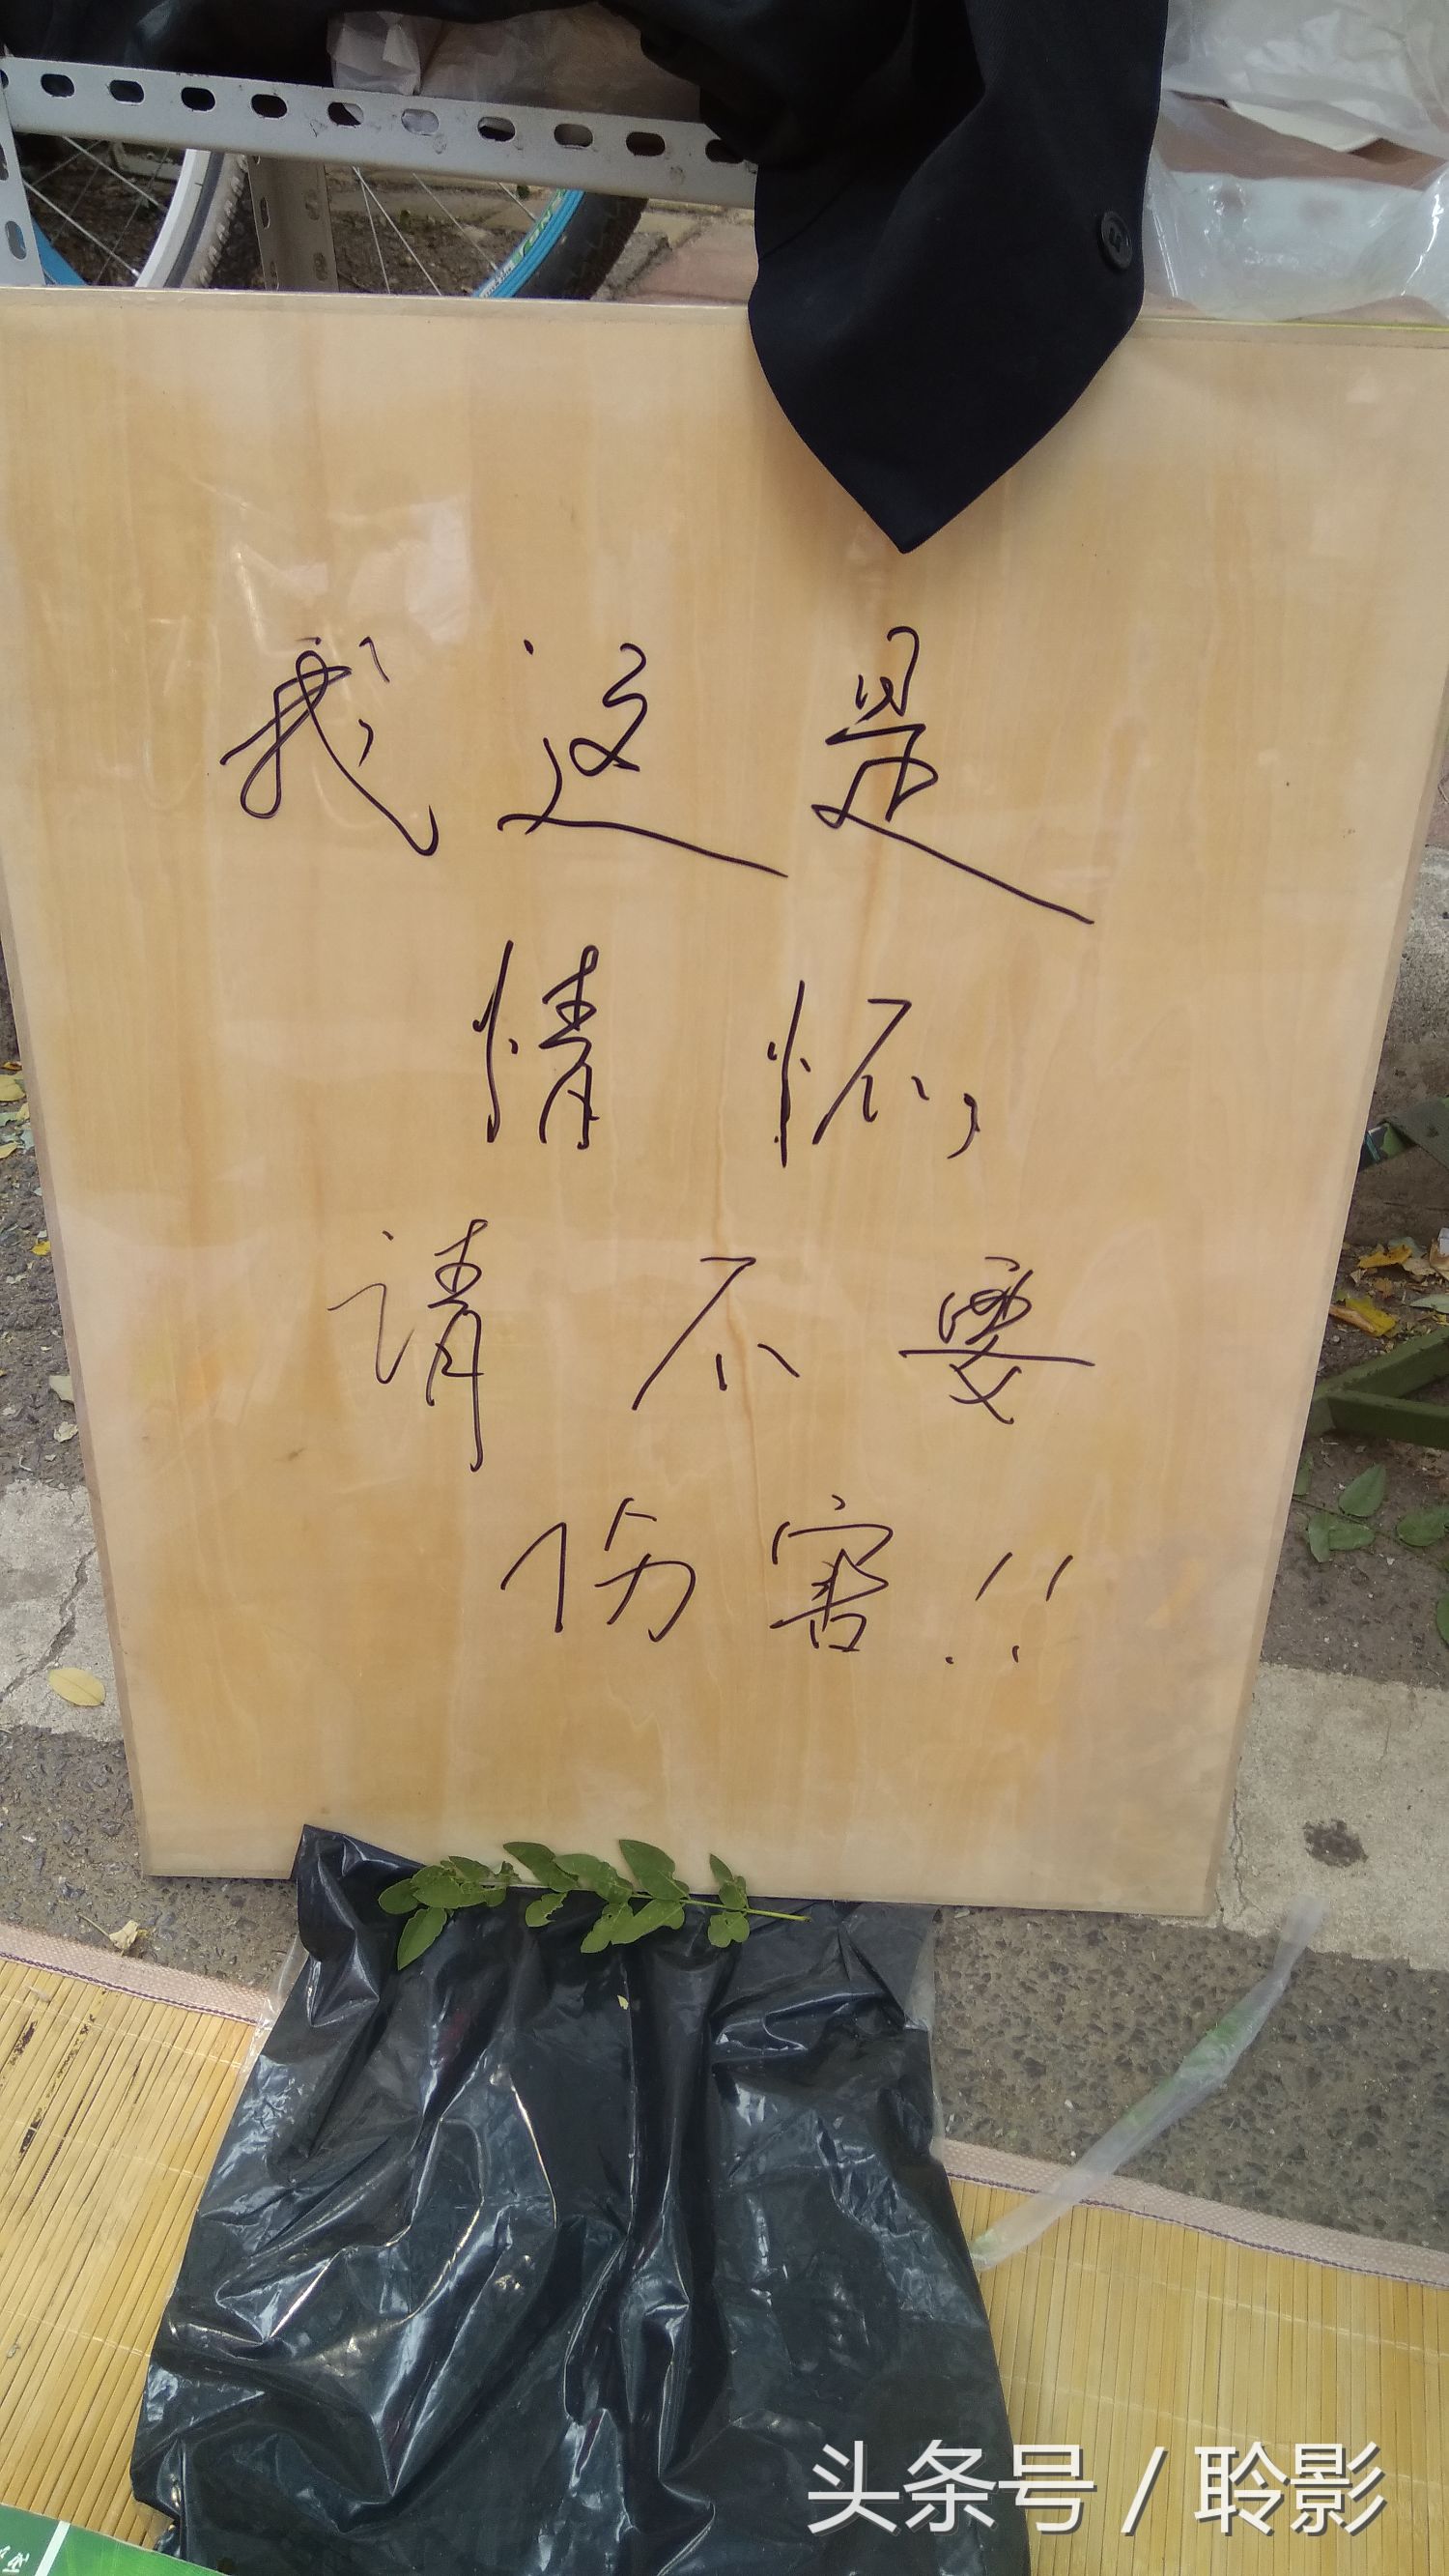 我这是
情怀,
请不要
伤害!!
头条号/聆影